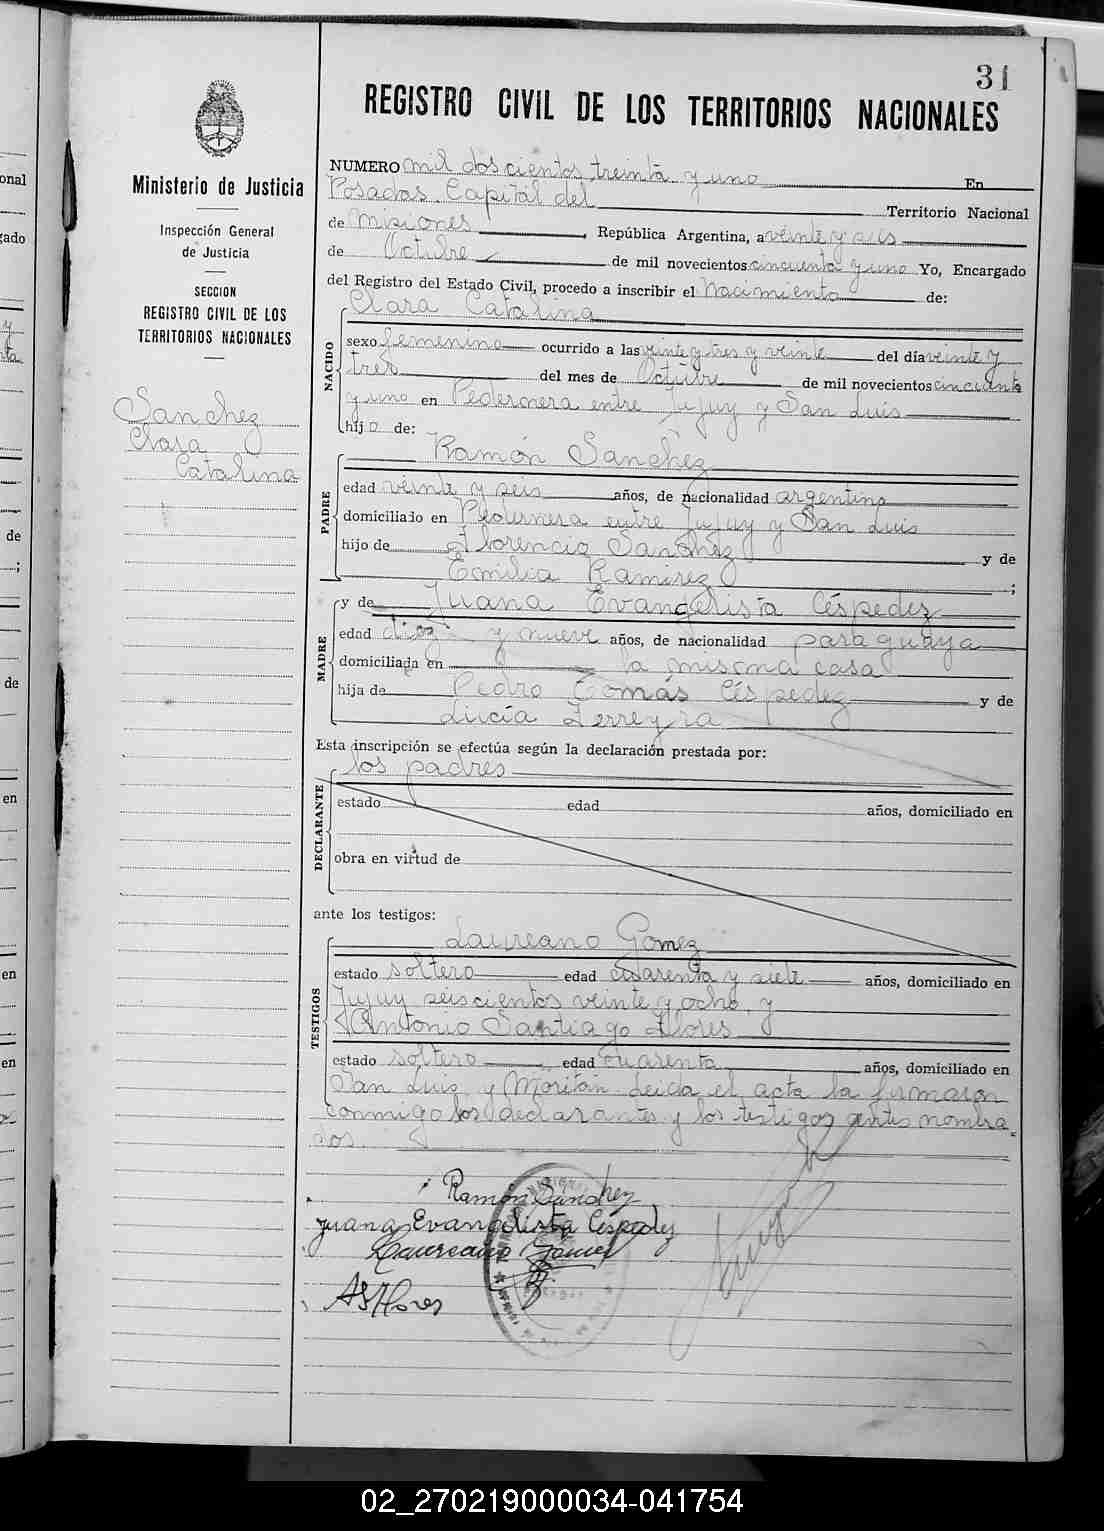 31
REGISTRO CIVIL DE LOS TERRITORIOS NACIONALES
Ministerio de Justicia
Inspección General
de Justicia
SECCION
REGISTRO CIVIL DE LOS
TERRITORIOS NACIONALES
Sanchez
Clara
Catalina
NUMERO mil doscientos treinta y uno En
Posadas Capital del Territorio Nacional
de Misiones, República Argentina, a veinte y seis
de Octubre de mil novecientos cincuenta y uno Yo, Encargado
del Registro del Estado Civil, procedo a inscribir el Nacimiento de:
Clara Catalina
NACIDO
sexo femenino ocurrido a las veinte y tres y veinte del día veinte y
tres del mes de Octubre de mil novecientos cincuenta
y uno en Pedernera entre Jujuy y San Luis
hija de:
PADRE
Ramón Sanchez
edad veinte y seis años, de nacionalidad argentina
domiciliado en Pedernera entre Jujuy y San Luis
hijo de Florencio Sanchez y de
Emilia Ramirez ;
MADRE
y de Juana Evangelista Céspedez
edad diez y nueve años, de nacionalidad paraguaya
domiciliada en la misma casa
hija de Pedro Tomás Céspedez y de
Lucía Ferreyra
Esta inscripción se efectúa según la declaración prestada por:
los padres
DECLARANTE
estado edad años, domiciliado en
obra en virtud de
ante los testigos:
TESTIGOS
Laureano Gomez
estado soltero edad cuarenta y siete años, domiciliado en
Jujuy seiscientos veinte y ocho, y
Antonio Santiago Flores
estado soltero edad cuarenta años, domiciliado en
San Luis y Moritán. Leida el acta la firmaron
conmigo los declarantes y los testigos antes nombra-
dos.
Ramón Sánchez
Juana Evangelista Céspedez
Laureano Gomez
A S Flores
02_270219000034-041754